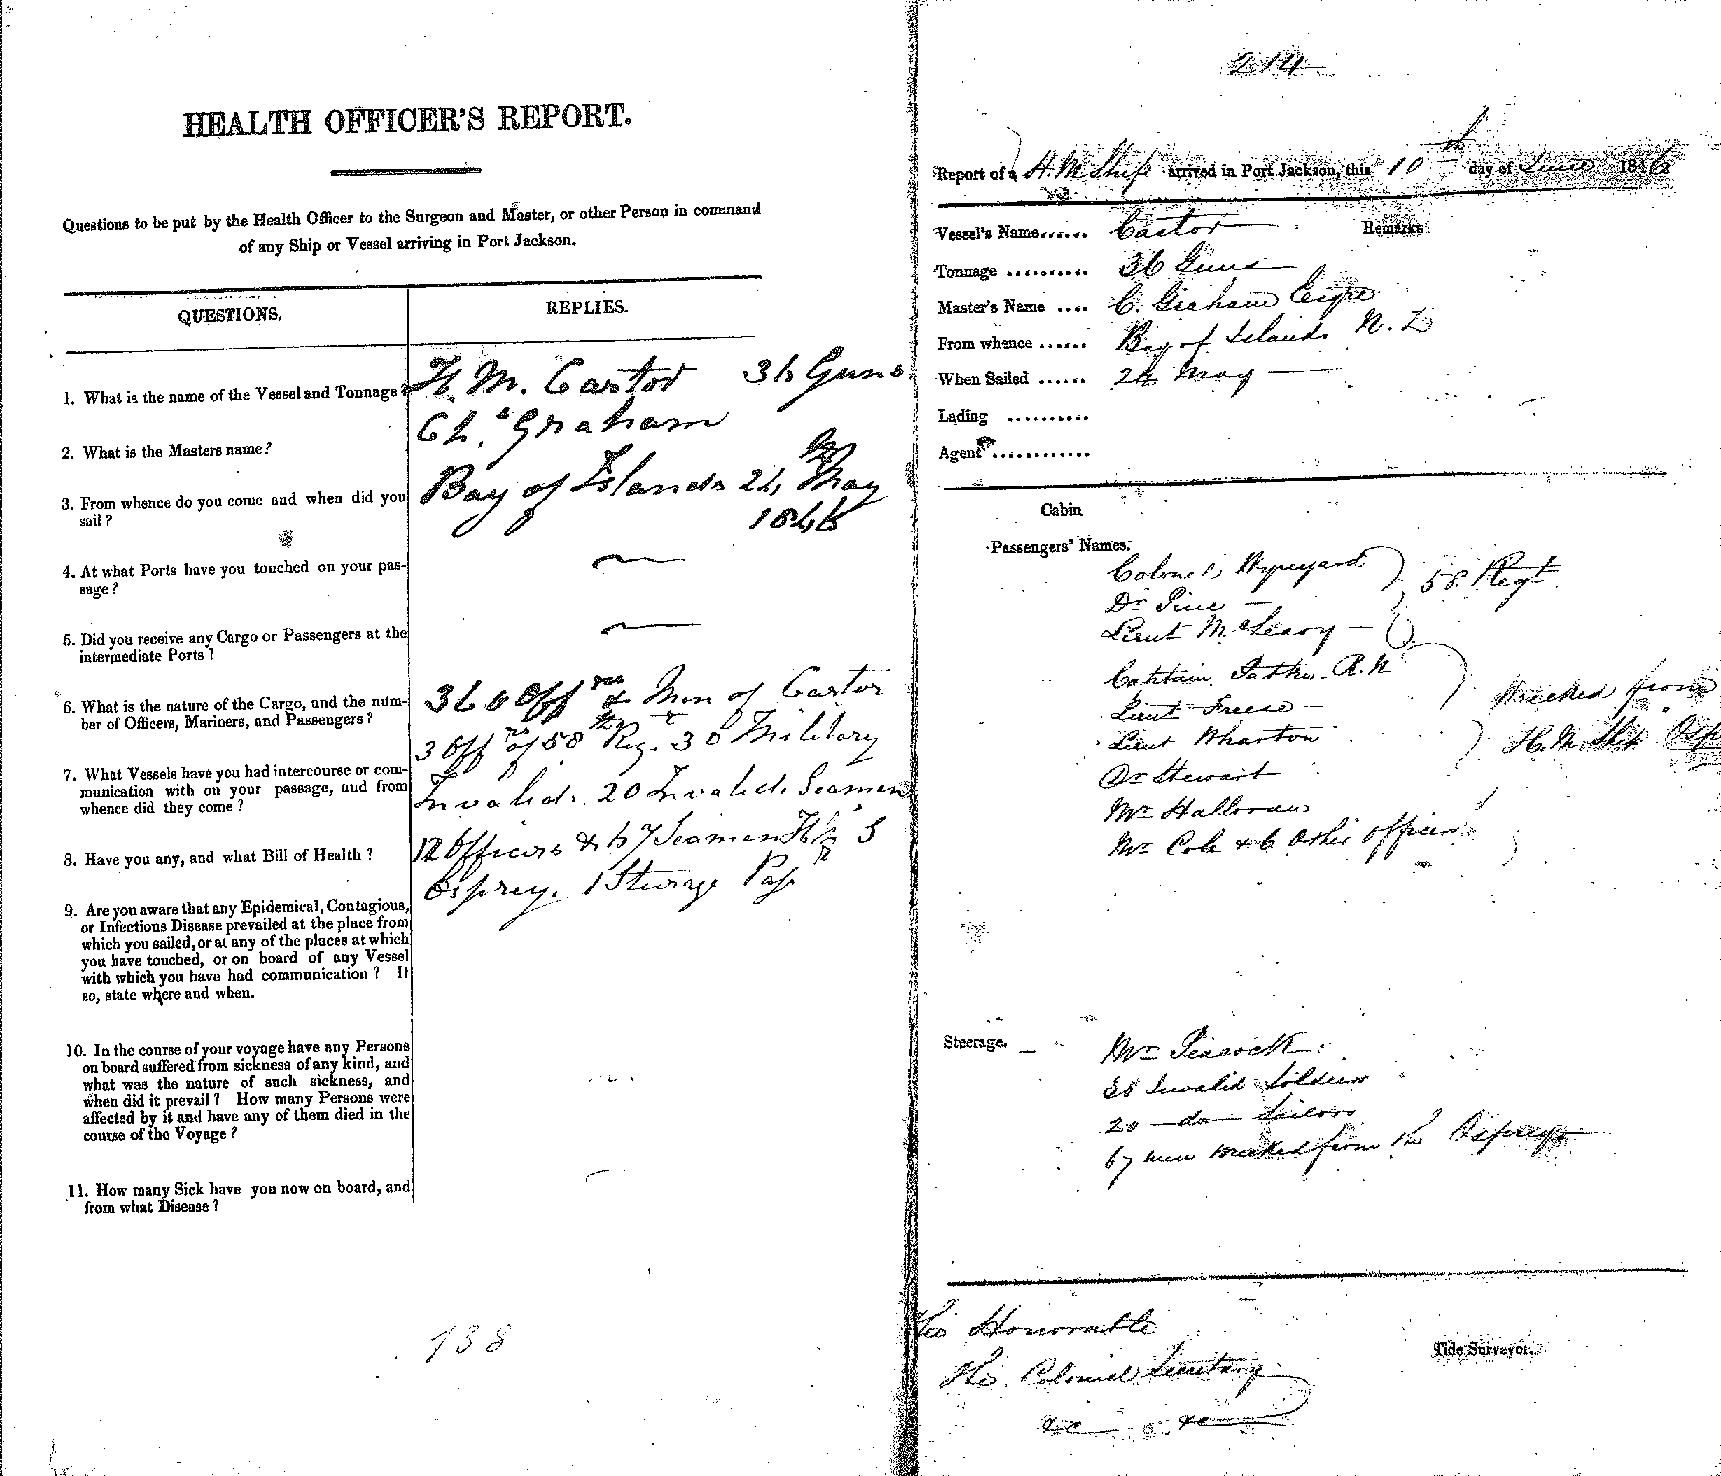 HEALTH OFFICER'S REPORT.
Questions to be put by the Health Officer to the Surgeon and Master, or other Person in command
of any Ship or Vessel arriving in Port Jackson.
QUESTIONS.
REPLIES.
1. What is the name of the Vessel and Tonnage?
H. M. Castor 36 Guns
2. What is the Masters name?
Chs. Graham
3. From whence do you come and when did you
sail?
Bay of Islands 24 May
1846
4. At what Ports have you touched on your pas-
sage?
5. Did you receive any Cargo or Passengers at the
intermediate Ports?
6. What is the nature of the Cargo, and the num-
ber of Officers, Mariners, and Passengers?
Offrs & Men of Castor
3 Offrs of 58th Reg. 38 Military
7. What Vessels have you had intercourse or com-
munication with on your passage, and from
whence did they come?
Invalids 20 Invalids Seamen
8. Have you any, and what Bill of Health?
12 Officers & 67 Seamen H M S
Osprey. 1 Steerage Pasr
9. Are you aware that any Epidemical, Contagious,
or Infectious Disease prevailed at the place from
which you sailed, or at any of the places at which
you have touched, or on board of any Vessel
with which you have had communication? If
so, state where and when.
10. In the course of your voyage have any Persons
on board suffered from sickness of any kind, and
what was the nature of such sickness, and
when did it prevail? How many Persons were
affected by it and have any of them died in the
course of the Voyage?
11. How many Sick have you now on board, and
from what Disease?
138
214
Report of a H. M. Ship arrived in Port Jackson, this 10th day of June 1846
Vessel's Name...... Castor
Remarks
Tonnage .......... 36 Guns
Master's Name .... C. Graham Esqre
From whence ...... Bay of Islands N. Z
When Sailed ...... 24 May
Lading ..........
Agent............
Cabin
Passengers' Names.
Colonel Wynyard
58 Regt
Dr Pine
Lieut McLeavy
Captain Patten R.N
Lieut Freese
Wrecked from
Lieut Wharton
H. M. Ship Osp
Dr Stewart
Mr Halloran
Mr Cole & 6 other officers
Steerage.
Mr Peacock
38 Invalid Soldiers
20 do Sailors
67 men wrecked from the Osprey
The Honorable
The Colonial Secretary
&c &c
Tide Surveyor.